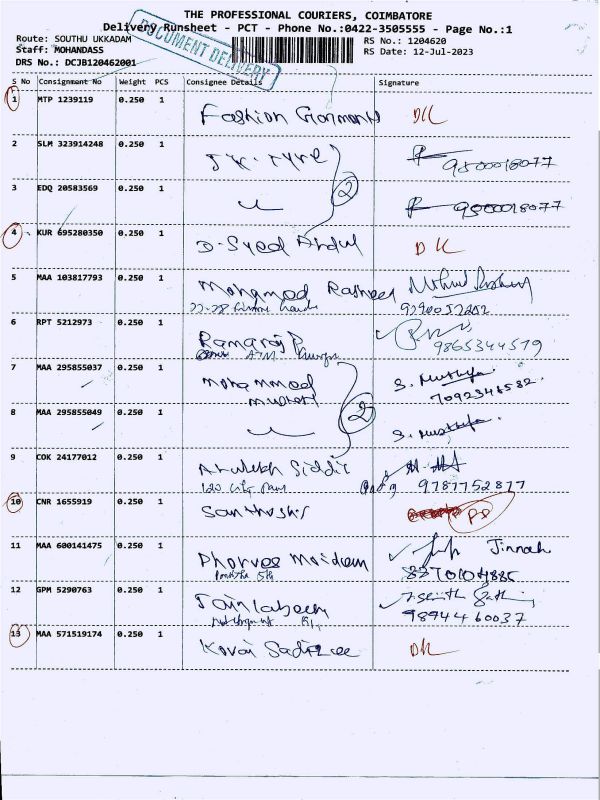 THE PROFESSIONAL COURIERS, COIMBATORE
Delivery Runsheet - PCT - Phone No.:0422-3505555 - Page No.:1
DOCUMENT DELIVERY
Route: SOUTHU UKKADAM
RS No.: 1204620
Staff: MOHANDASS
RS Date: 12-Jul-2023
DRS No.: DCJB120462001
S No Consignment No Weight PCS Consignee Details Signature
1 MTP 1239119 0.250 1 Fashion Garments DL
2 SLM 323914248 0.250 1 J.K. Tyre 9500018077
3 EDQ 20583569 0.250 1 9500018077
2
4 KUR 695280350 0.250 1 D. Syed Abdul DL
5 MAA 103817793 0.250 1 Mohamed Rasheed
6 RPT 5212973 0.250 1 Ramaraj P
9865344579
7 MAA 295855037 0.250 1 Mohammed S. Mustafa
7092346582
8 MAA 295855049 0.250 1 S. Mustafa
2
9 COK 24177012 0.250 1 Siddic
120 City 9787752877
10 CNR 1655919 0.250 1 Santhosh
11 MAA 600141475 0.250 1 Jinnah
12 GPM 5290763 0.250 1 Jainlabeen
9894460037
13 MAA 571519174 0.250 1 Kovai DL